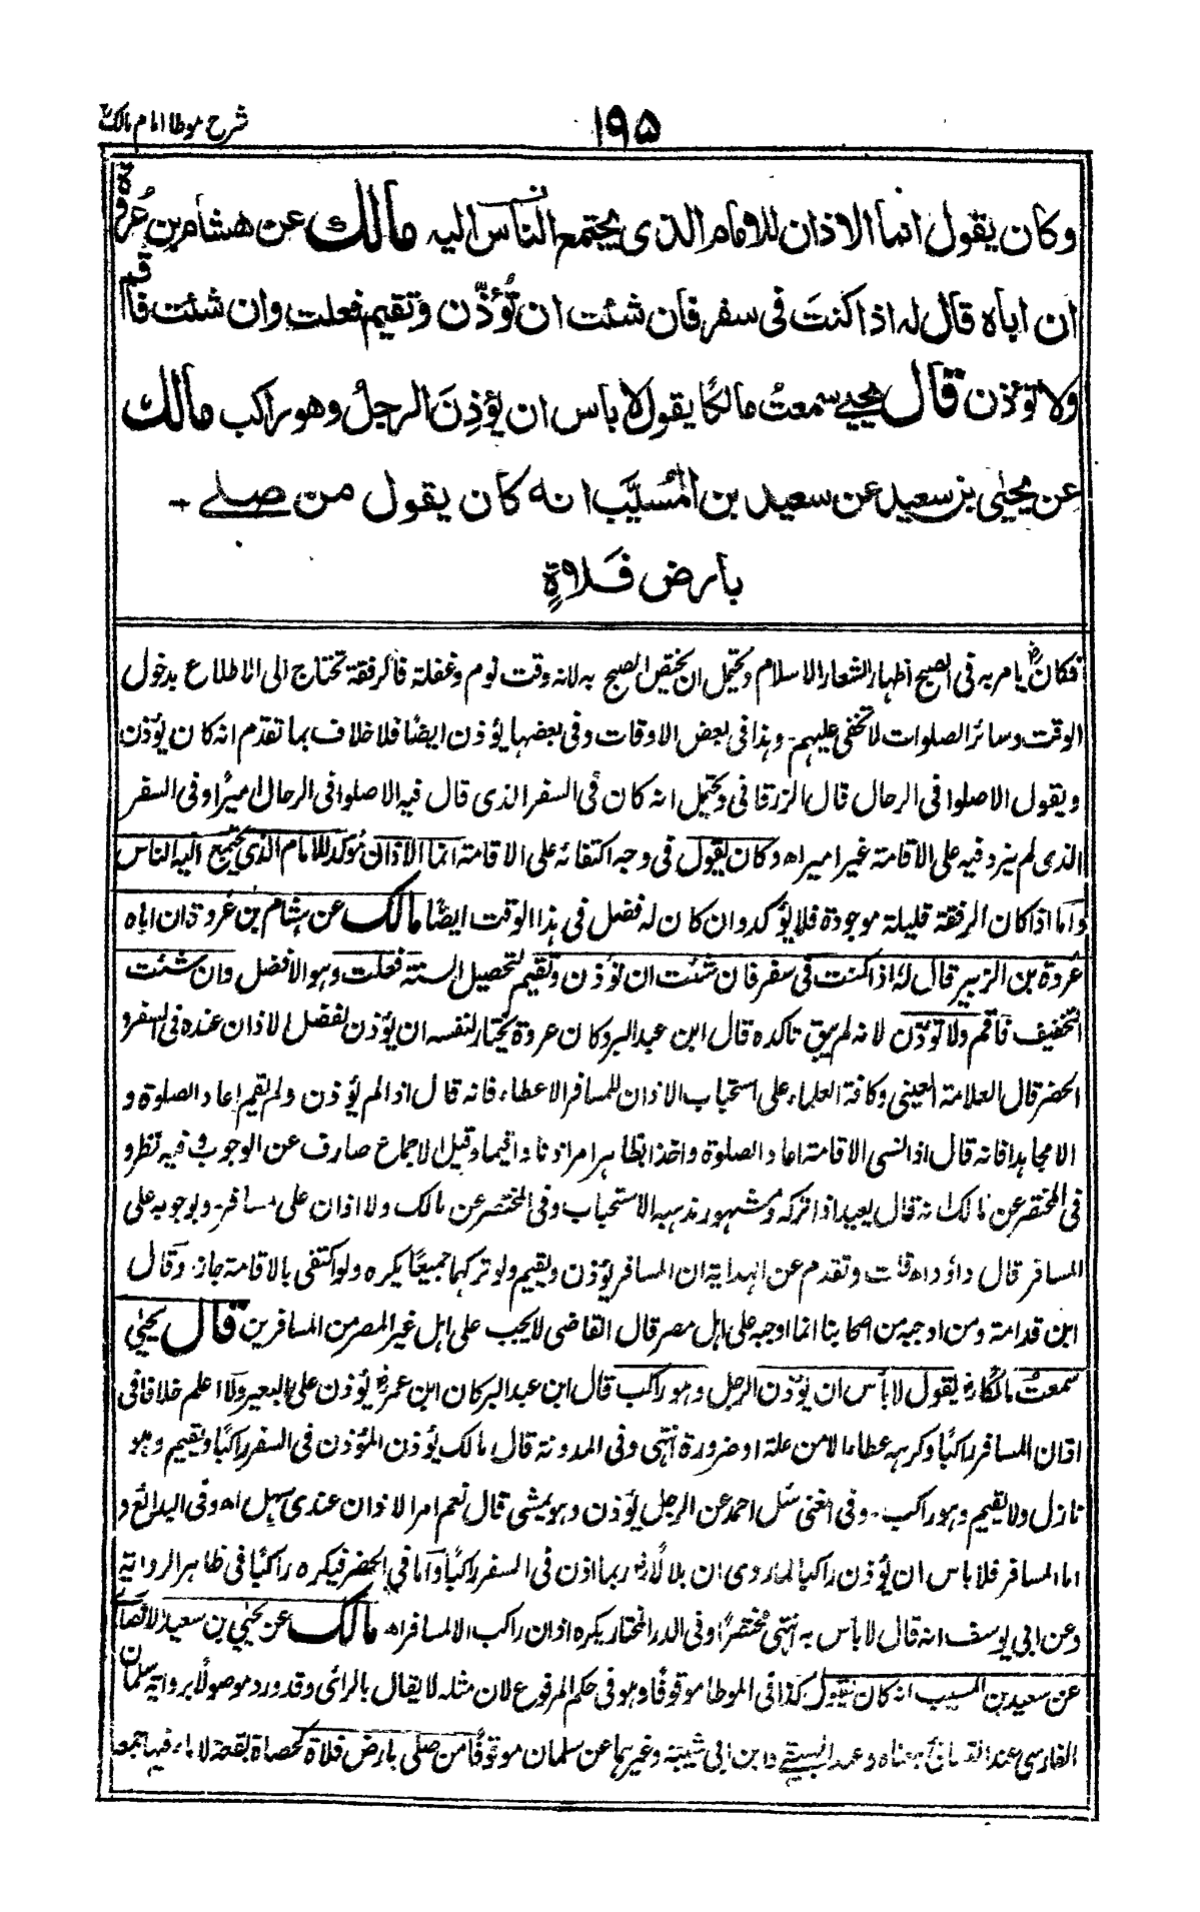 ١٩٥
شرح موطا امام مالك
وكان يقول انما الاذان للامام الذى يجتمع الناس اليه مالك عن هشام بن عُروة
ان اباه قال له اذا كنتَ فى سفر فان شئت ان تُؤذّن وتقيم فعلت وان شئت فاقم
ولا تؤذن قال يحيى سمعتُ مالكًا يقول لا باس ان يؤذِنَ الرجلُ وهو راكب مالك
عن يحيٰى بن سعيد عن سعيد بن المُسيَّب انه كان يقول من صلے -
بارض فلاةٍ
فكان يامر به فى الصبح اظهار الشعار الاسلام ويحتمل ان يختص الصبح به لانه وقت نوم وغفلة فالرفقة تحتاج الى الاطلاع بدخول
الوقت وسائر الصلوات لا تخفى عليهم - وهذا فى بعض الاوقات وفى بعضها يؤذن ايضًا فلا خلاف بما تقدم انه كان يؤذن
ويقول الا صلوا فى الرحال قال الزرقانى ويحتمل انه كان فى السفر الذى قال فيه الا صلوا فى الرحال اميرًا وفى السفر
الذى لم يزد فيه على الاقامة غير امير اه وكان يقول فى وجه اكتفائه على الاقامة انما الاذان مؤكد للامام الذى يجتمع اليه الناس
واما اذا كان الرفقة قليلة موجودة فلا يؤكد وان كان له فضل فى هذا الوقت ايضًا مالك عن هشام بن عروة ان اباه
عروة بن الزبير قال له اذا كنت فى سفر فان شئت ان تؤذن وتقيم لتحصيل السنة فعلت وهو الافضل وان شئت
التخفيف فاقم ولا تؤذن لانه لم يبق تاكده قال ابن عبد البر وكان عروة يختار لنفسه ان يؤذن لفضل الاذان عنده فى السفر و
الحضر قال العلامة العينى وكافة العلماء على استحباب الاذان للمسافر الا عطاء فانه قال اذا لم يؤذن ولم يقم اعاد الصلوة و
الا مجاهدا فانه قال اذا نسى الاقامة اعاد الصلوة واخذا بظاهر امر اذنا واقيما وقيل الاجماع صارف عن الوجوب وفيه نظر و
فى المختصر عن مالك انه قال يعيد اذا تركه ومشهور مذهبه الاستحباب وفى المختصر عن مالك ولا اذان على مسافر - وبوجوبه على
المسافر قال داؤد اه قلت وتقدم عن الهداية ان المسافر يؤذن ويقيم ولو تركهما جميعًا يكره ولو اكتفى بالاقامة جاز. وقال
ابن قدامة ومن اوجبه من اصحابنا انما اوجبه على اهل مصر قال القاضى لا يجب على اهل غير المصر من المسافرين قال يحيٰى
سمعتُ مالكًا يقول لا باس ان يؤذن الرجل وهو راكب قال ابن عبد البر كان ابن عمر يؤذن على البعير ولا اعلم خلافا فى
اذان المسافر راكبًا وكرهه عطاء الا من علة او ضرورة انتهى وفى المدونة قال مالك يؤذن المؤذن فى السفر راكبًا ويقيم وهو
نازل ولا يقيم وهو راكب - وفى المغنى سئل احمد عن الرجل يؤذن وهو يمشى قال نعم امر الاذان عندى سهل اه وفى البدائع و
اما المسافر فلا باس ان يؤذن راكبا لما روى ان بلالًا ربما اذن فى السفر راكبًا واما فى الحضر فيكره راكبًا فى ظاهر الرواية
وعن ابى يوسف انه قال لا باس به انتهى مختصرًا وفى الدر المختار يكره اذان راكب الا المسافر اه مالك عن يحيى بن سعيد الانصارى
عن سعيد بن المسيب انه كان يقول كذا فى الموطا موقوفًا وهو فى حكم المرفوع لان مثله لا يقال بالراى وقد ورد موصولًا برواية سلمان
الفارسى عند النسائى بمعناه وعند البيهقے وابن ابى شيبة وغيرهما عن سلمان موقوفًا من صلى بارض فلاة